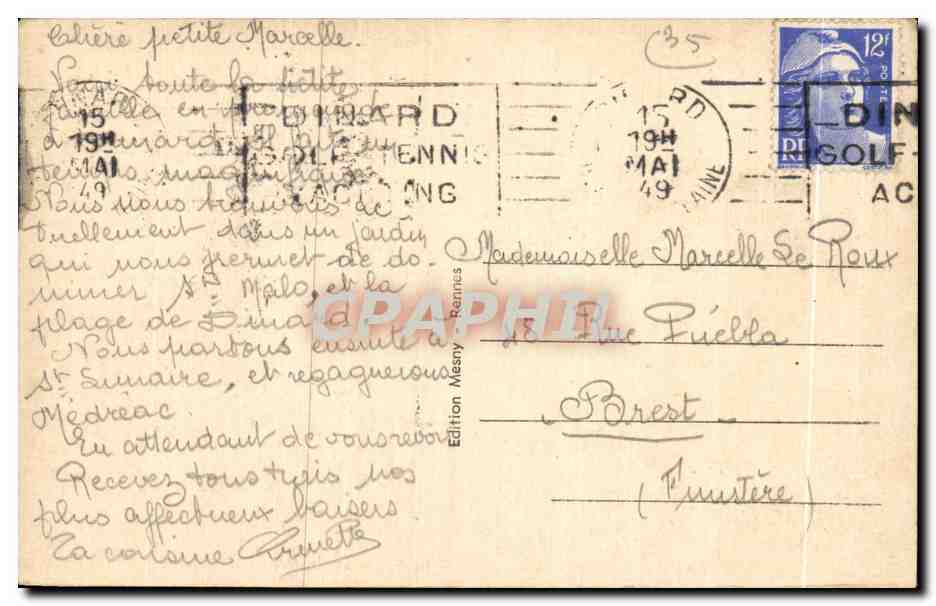 Chère petite Marcelle.
Voici toute la petite
famille en
à Dinard. Il fait un
temps magnifique.
Nous nous trouvons ac-
tuellement dans un jardin
qui nous permet de do-
miner St Malo, et la
plage de Dinard
Nous partons ensuite à
St Lunaire, et regagnerons
Médréac.
En attendant de vous revoir
Recevez tous trois nos
plus affectueux baisers
Ta cousine
(35
12F
POSTES
RF
15
19H
MAI
49
DINARD
GOLF-TENNIS
YACHTING
15
19H
MAI
49
DIN
GOLF-
AC
Edition Mesny - Rennes
Mademoiselle Marcelle Le Roux
18 Rue Puébla
Brest
(Finistère)
CPAPHIL